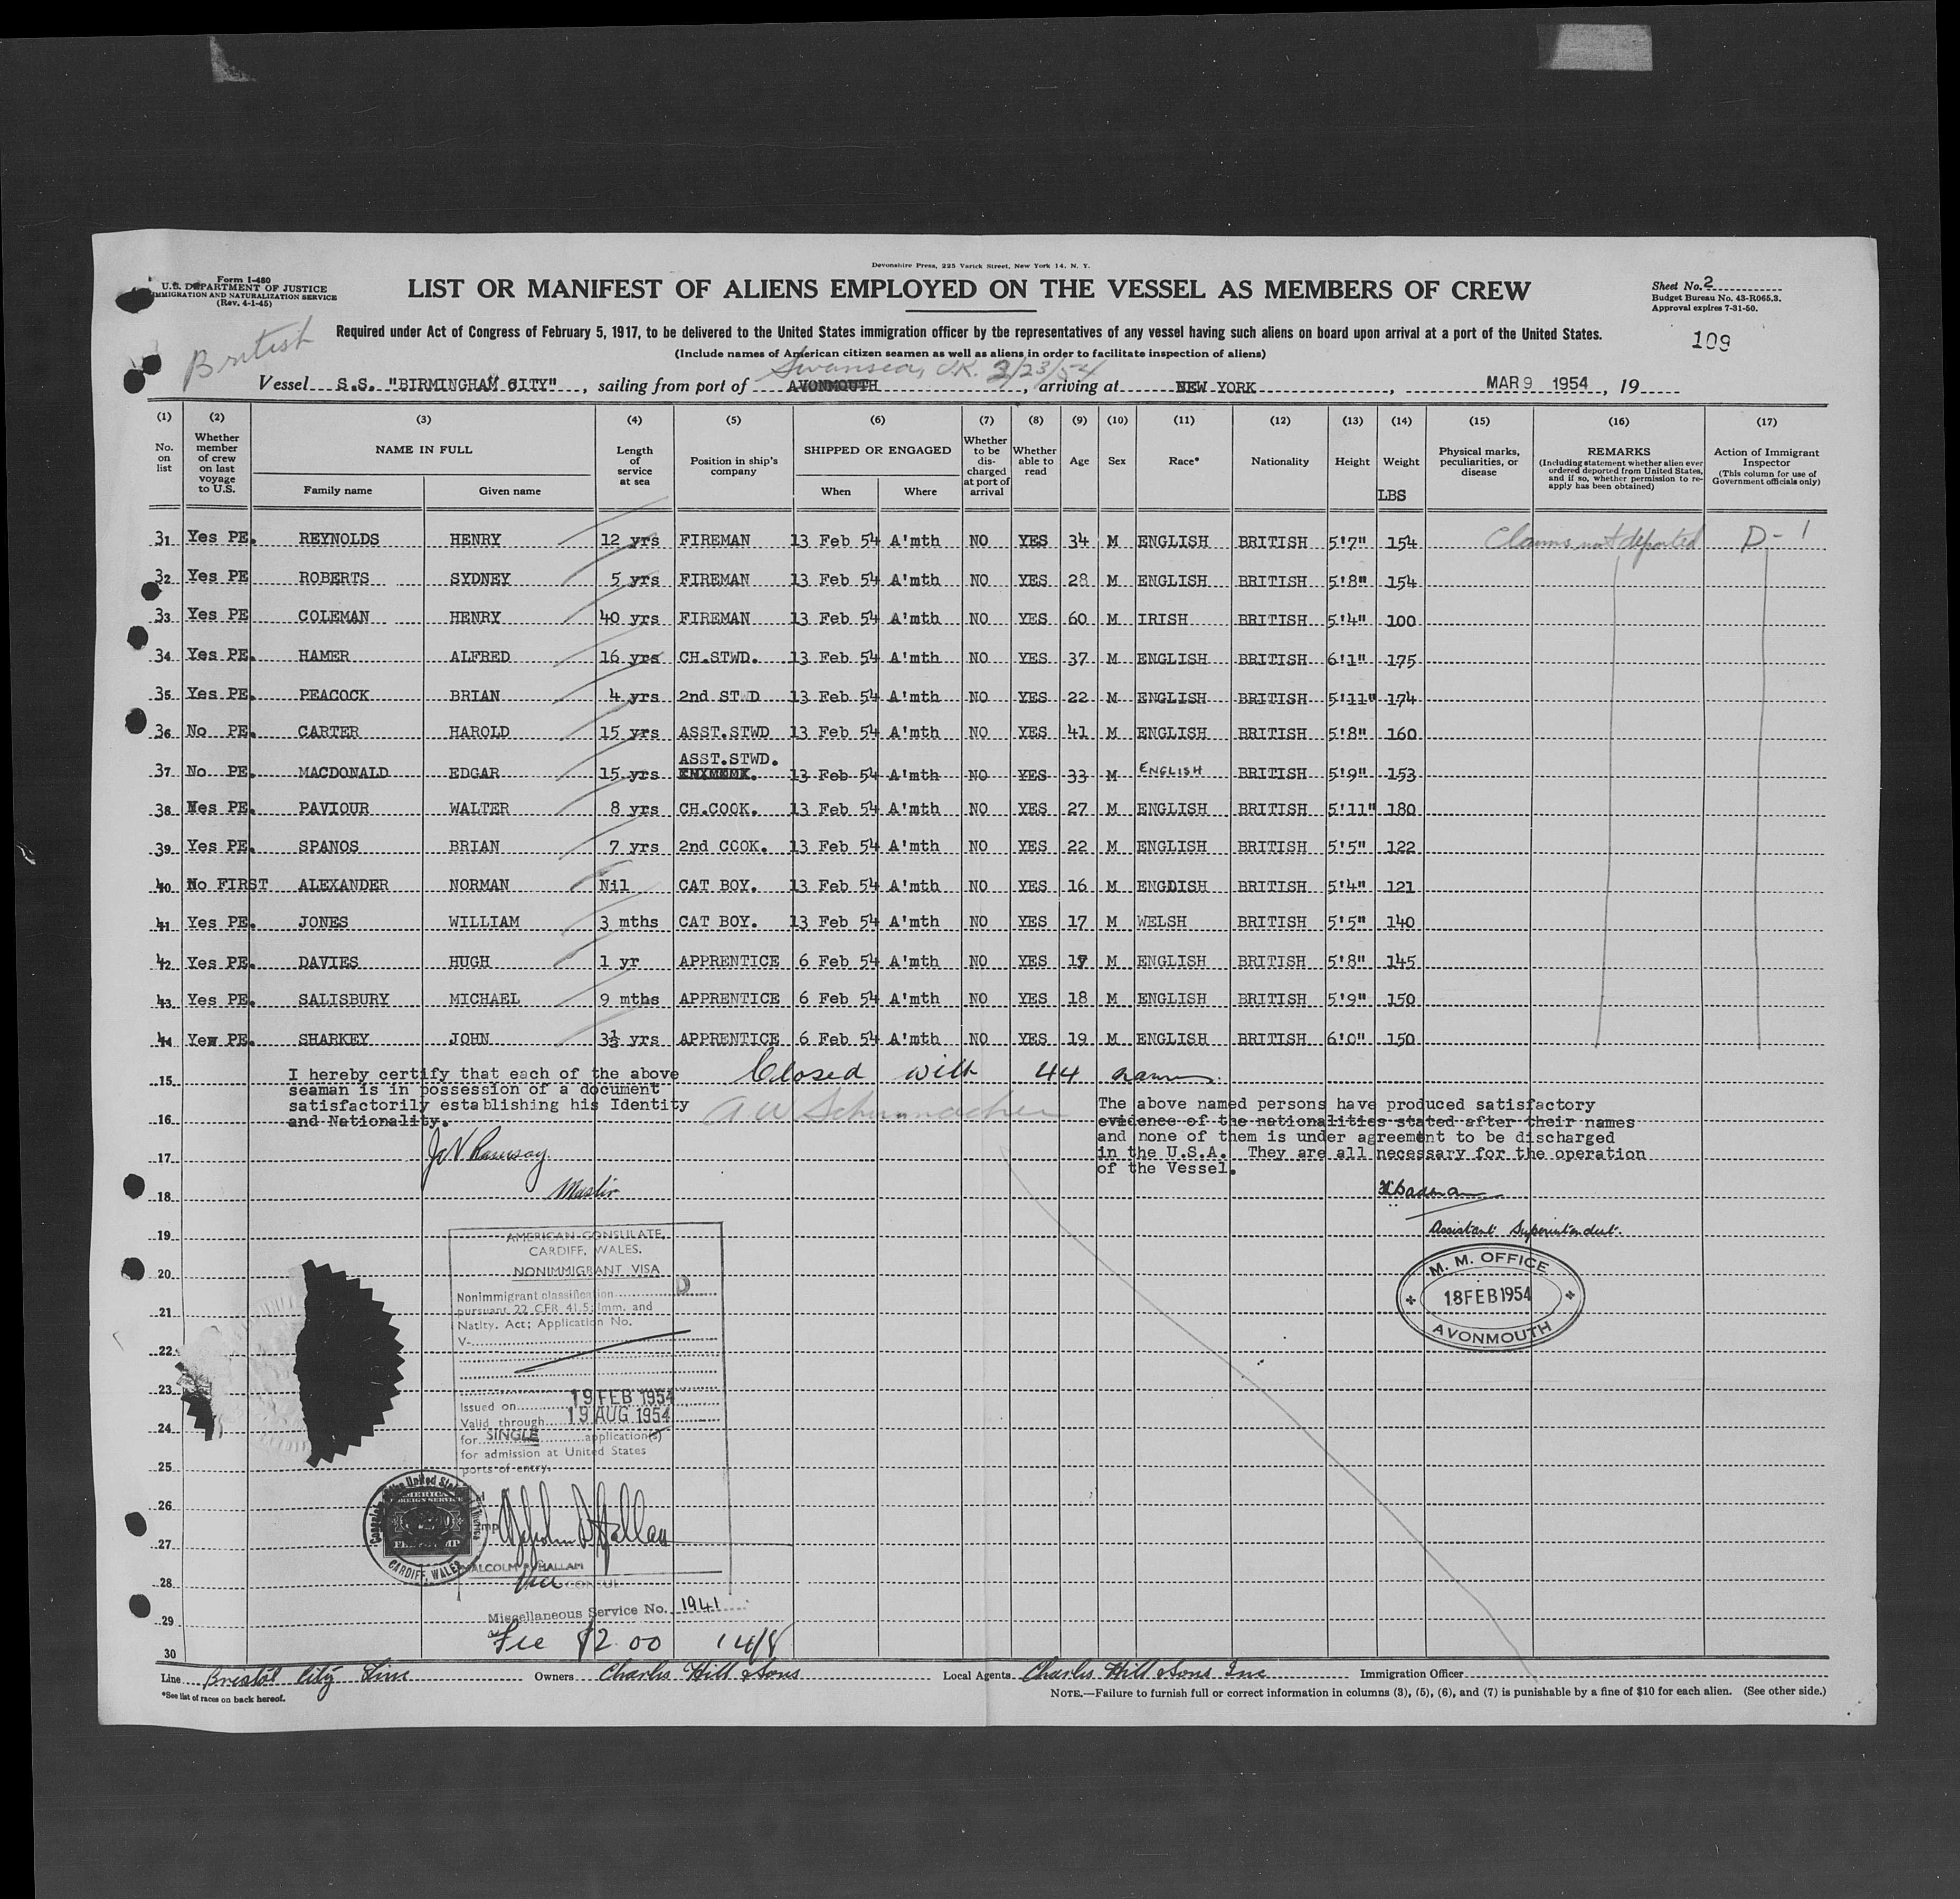 Devonshire Press, 225 Varick Street, New York 14, N. Y.
Form I-480
U.S. DEPARTMENT OF JUSTICE
IMMIGRATION AND NATURALIZATION SERVICE
(Rev. 4-1-45)
LIST OR MANIFEST OF ALIENS EMPLOYED ON THE VESSEL AS MEMBERS OF CREW
Sheet No. 2
Budget Bureau No. 43-R065.3.
Approval expires 7-31-50.
109
British
Required under Act of Congress of February 5, 1917, to be delivered to the United States immigration officer by the representatives of any vessel having such aliens on board upon arrival at a port of the United States.
(Include names of American citizen seamen as well as aliens in order to facilitate inspection of aliens)
Swansea, U.K. 2/23/54
Vessel S.S. "BIRMINGHAM CITY", sailing from port of AVONMOUTH, arriving at NEW YORK, MAR 9 1954, 19
(1) (2) (3) (4) (5) (6) (7) (8) (9) (10) (11) (12) (13) (14) (15) (16) (17)
No. on list
Whether member of crew on last voyage to U.S.
NAME IN FULL
Family name Given name
Length of service at sea
Position in ship's company
SHIPPED OR ENGAGED
When Where
Whether to be discharged at port of arrival
Whether able to read
Age
Sex
Race*
Nationality
Height
Weight
LBS
Physical marks, peculiarities, or disease
REMARKS
(Including statement whether alien ever ordered deported from United States, and if so, whether permission to re-apply has been obtained)
Action of Immigrant Inspector
(This column for use of Government officials only)
31 Yes PE. REYNOLDS HENRY 12 yrs FIREMAN 13 Feb 54 A'mth NO YES 34 M ENGLISH BRITISH 5'7" 154 Claims not deported D-1
32 Yes PE ROBERTS SYDNEY 5 yrs FIREMAN 13 Feb 54 A'mth NO YES 28 M ENGLISH BRITISH 5'8" 154
33 Yes PE COLEMAN HENRY 40 yrs FIREMAN 13 Feb 54 A'mth NO YES 60 M IRISH BRITISH 5'4" 100
34 Yes PE. HAMER ALFRED 16 yrs CH.STWD. 13 Feb 54 A'mth NO YES 37 M ENGLISH BRITISH 6'1" 175
35 Yes PE. PEACOCK BRIAN 4 yrs 2nd STWD 13 Feb 54 A'mth NO YES 22 M ENGLISH BRITISH 5'11" 174
36 No PE. CARTER HAROLD 15 yrs ASST.STWD 13 Feb 54 A'mth NO YES 41 M ENGLISH BRITISH 5'8" 160
ASST.STWD.
37 No PE. MACDONALD EDGAR 15 yrs 13 Feb 54 A'mth NO YES 33 M ENGLISH BRITISH 5'9" 153
38 Yes PE. PAVIOUR WALTER 8 yrs CH.COOK. 13 Feb 54 A'mth NO YES 27 M ENGLISH BRITISH 5'11" 180
39 Yes PE. SPANOS BRIAN 7 yrs 2nd COOK. 13 Feb 54 A'mth NO YES 22 M ENGLISH BRITISH 5'5" 122
40 No FIRST ALEXANDER NORMAN Nil CAT BOY. 13 Feb 54 A'mth NO YES 16 M ENGDISH BRITISH 5'4" 121
41 Yes PE. JONES WILLIAM 3 mths CAT BOY. 13 Feb 54 A'mth NO YES 17 M WELSH BRITISH 5'5" 140
42 Yes PE. DAVIES HUGH 1 yr APPRENTICE 6 Feb 54 A'mth NO YES 17 M ENGLISH BRITISH 5'8" 145
43 Yes PE. SALISBURY MICHAEL 9 mths APPRENTICE 6 Feb 54 A'mth NO YES 18 M ENGLISH BRITISH 5'9" 150
44 Yew PE. SHARKEY JOHN 3½ yrs APPRENTICE 6 Feb 54 A'mth NO YES 19 M ENGLISH BRITISH 6'0" 150
Closed with 44 names.
I hereby certify that each of the above
seaman is in possession of a document
satisfactorily establishing his Identity
and Nationality.
A W Schumacher
The above named persons have produced satisfactory
evidence of the nationalities stated after their names
and none of them is under agreement to be discharged
in the U.S.A. They are all necessary for the operation
of the Vessel.
Ramsay
Master
Assistant Superintendent.
M. M. OFFICE
18 FEB 1954
AVONMOUTH
15
16
17
18
19
20
21
22
23
24
25
26
27
28
29
30
AMERICAN CONSULATE,
CARDIFF, WALES.
NONIMMIGRANT VISA
Nonimmigrant classification D
pursuant 22 CFR 41.5; Imm. and
Natlty. Act; Application No.
V-
Issued on 19 FEB 1954
Valid through 19 AUG 1954
for SINGLE application(s)
for admission at United States
ports of entry.
MALCOLM P. HALLAM
Vice CONSUL
AMERICAN
FOREIGN SERVICE
FEE STAMP
CARDIFF, WALES
Miscellaneous Service No. 1941
Fee $2.00 14/8
Line Bristol City Line Owners Charles Hill & Sons Local Agents Charles Hill & Sons Inc Immigration Officer
*See list of races on back hereof.
NOTE.—Failure to furnish full or correct information in columns (3), (5), (6), and (7) is punishable by a fine of $10 for each alien. (See other side.)